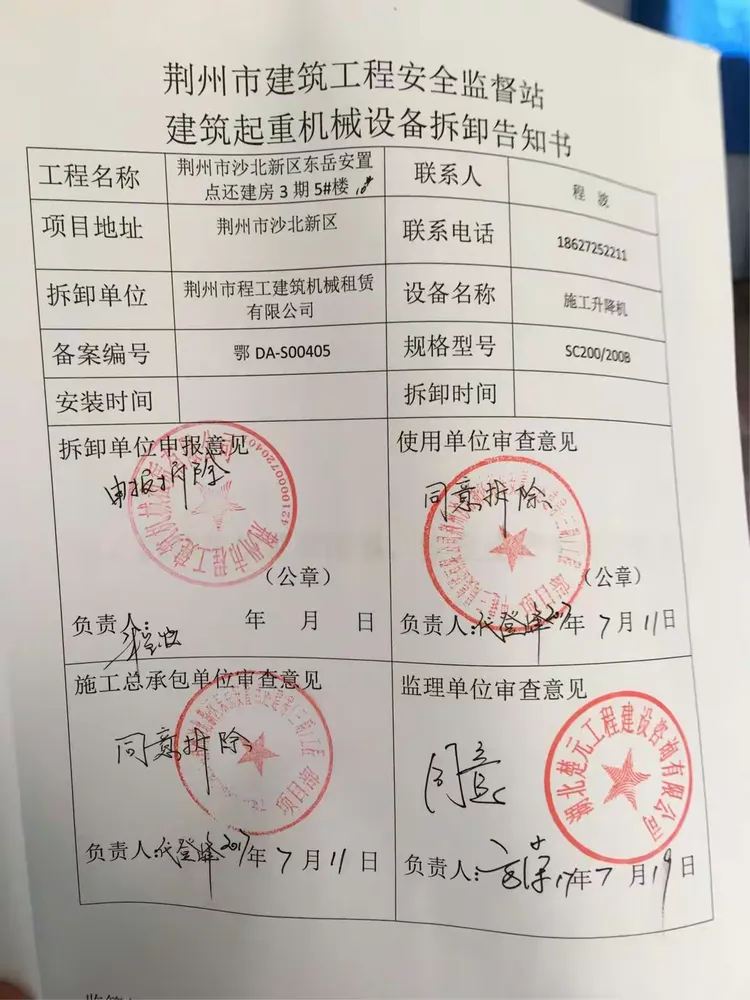 荆州市建筑工程安全监督站
建筑起重机械设备拆卸告知书
工程名称
荆州市沙北新区东岳安置
点还建房3期5#楼
联系人
程波
项目地址
荆州市沙北新区
联系电话
18627252211
拆卸单位
荆州市程工建筑机械租赁
有限公司
设备名称
施工升降机
备案编号
鄂 DA-S00405
规格型号
SC200/200B
安装时间
拆卸时间
拆卸单位申报意见
申报拆除
荆州市程工建筑机械租赁有限公司
（公章）
负责人：程波
年 月 日
使用单位审查意见
同意拆除
（公章）
负责人：代登峰 2017年7月11日
施工总承包单位审查意见
同意拆除
项目部
负责人：代登峰 2017年7月11日
监理单位审查意见
同意
湖北楚元工程建设咨询有限公司
负责人： 17年7月19日